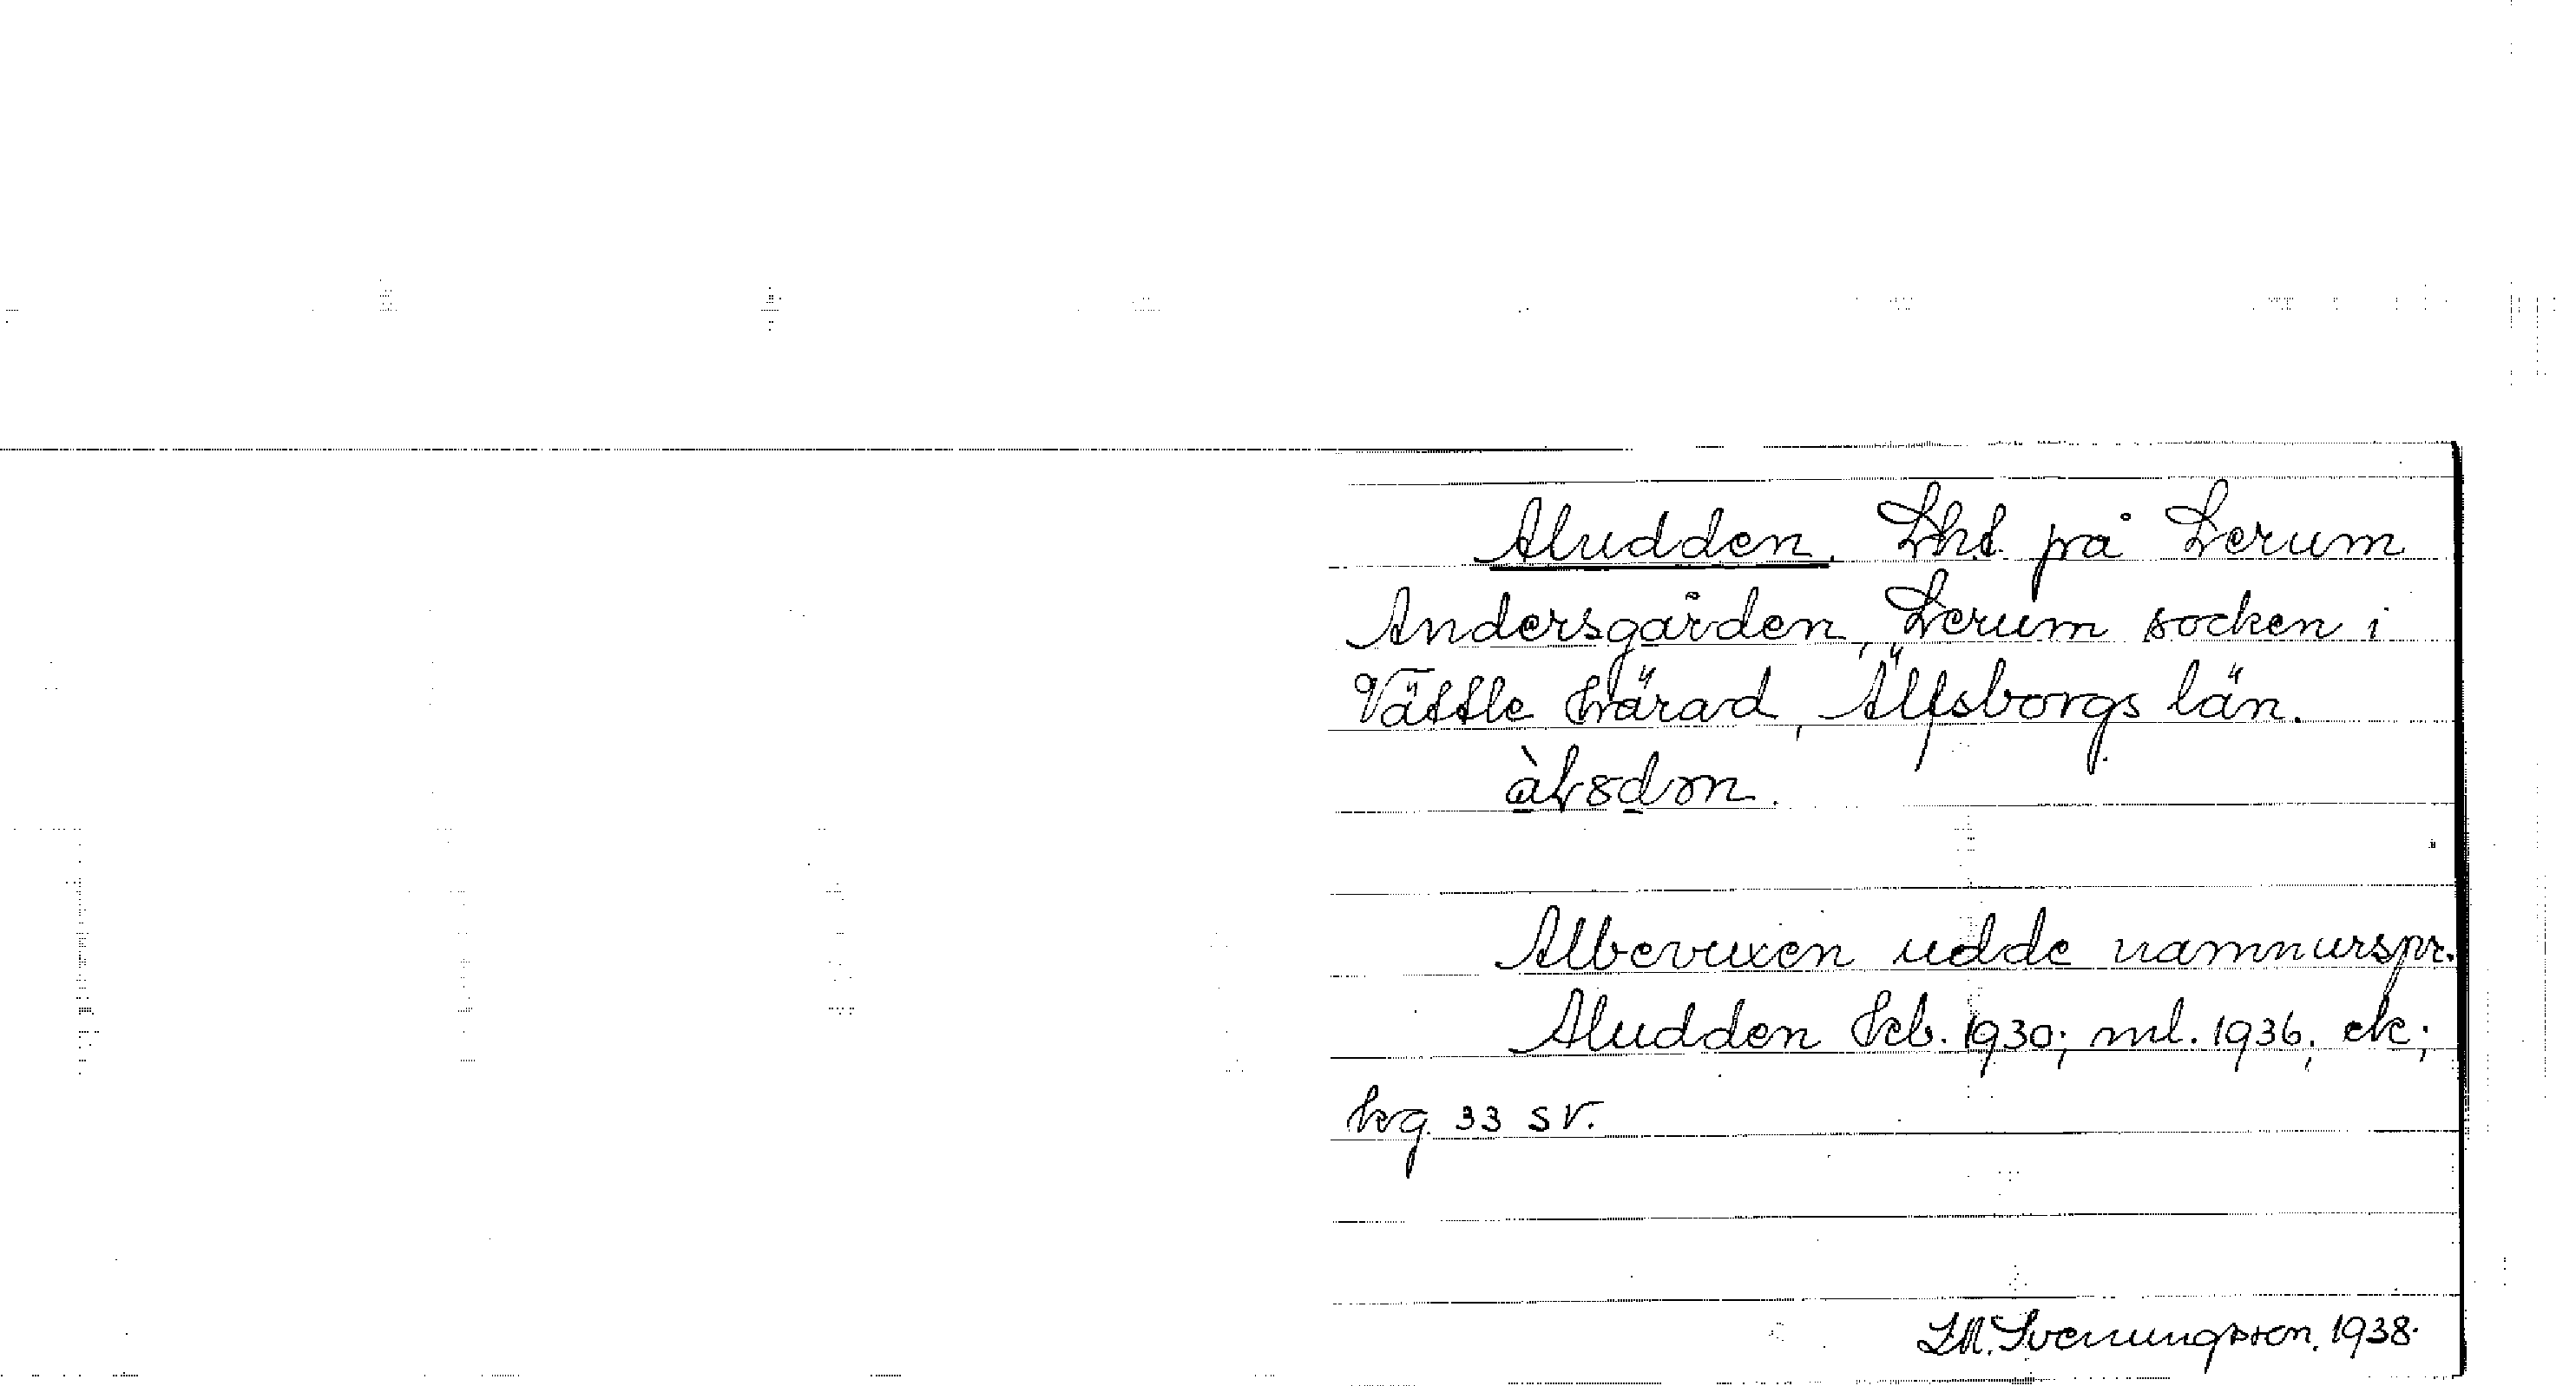 Aludden. Lht på Lerum
Andersgården, Lerum socken i
Vättle härad, Älfsborgs län.
Albevuxen udde namnurspr.
Aludden Jeb. 1930; ml. 1936, ek;
hvg 33 SV.
Svenungsson. 1938.